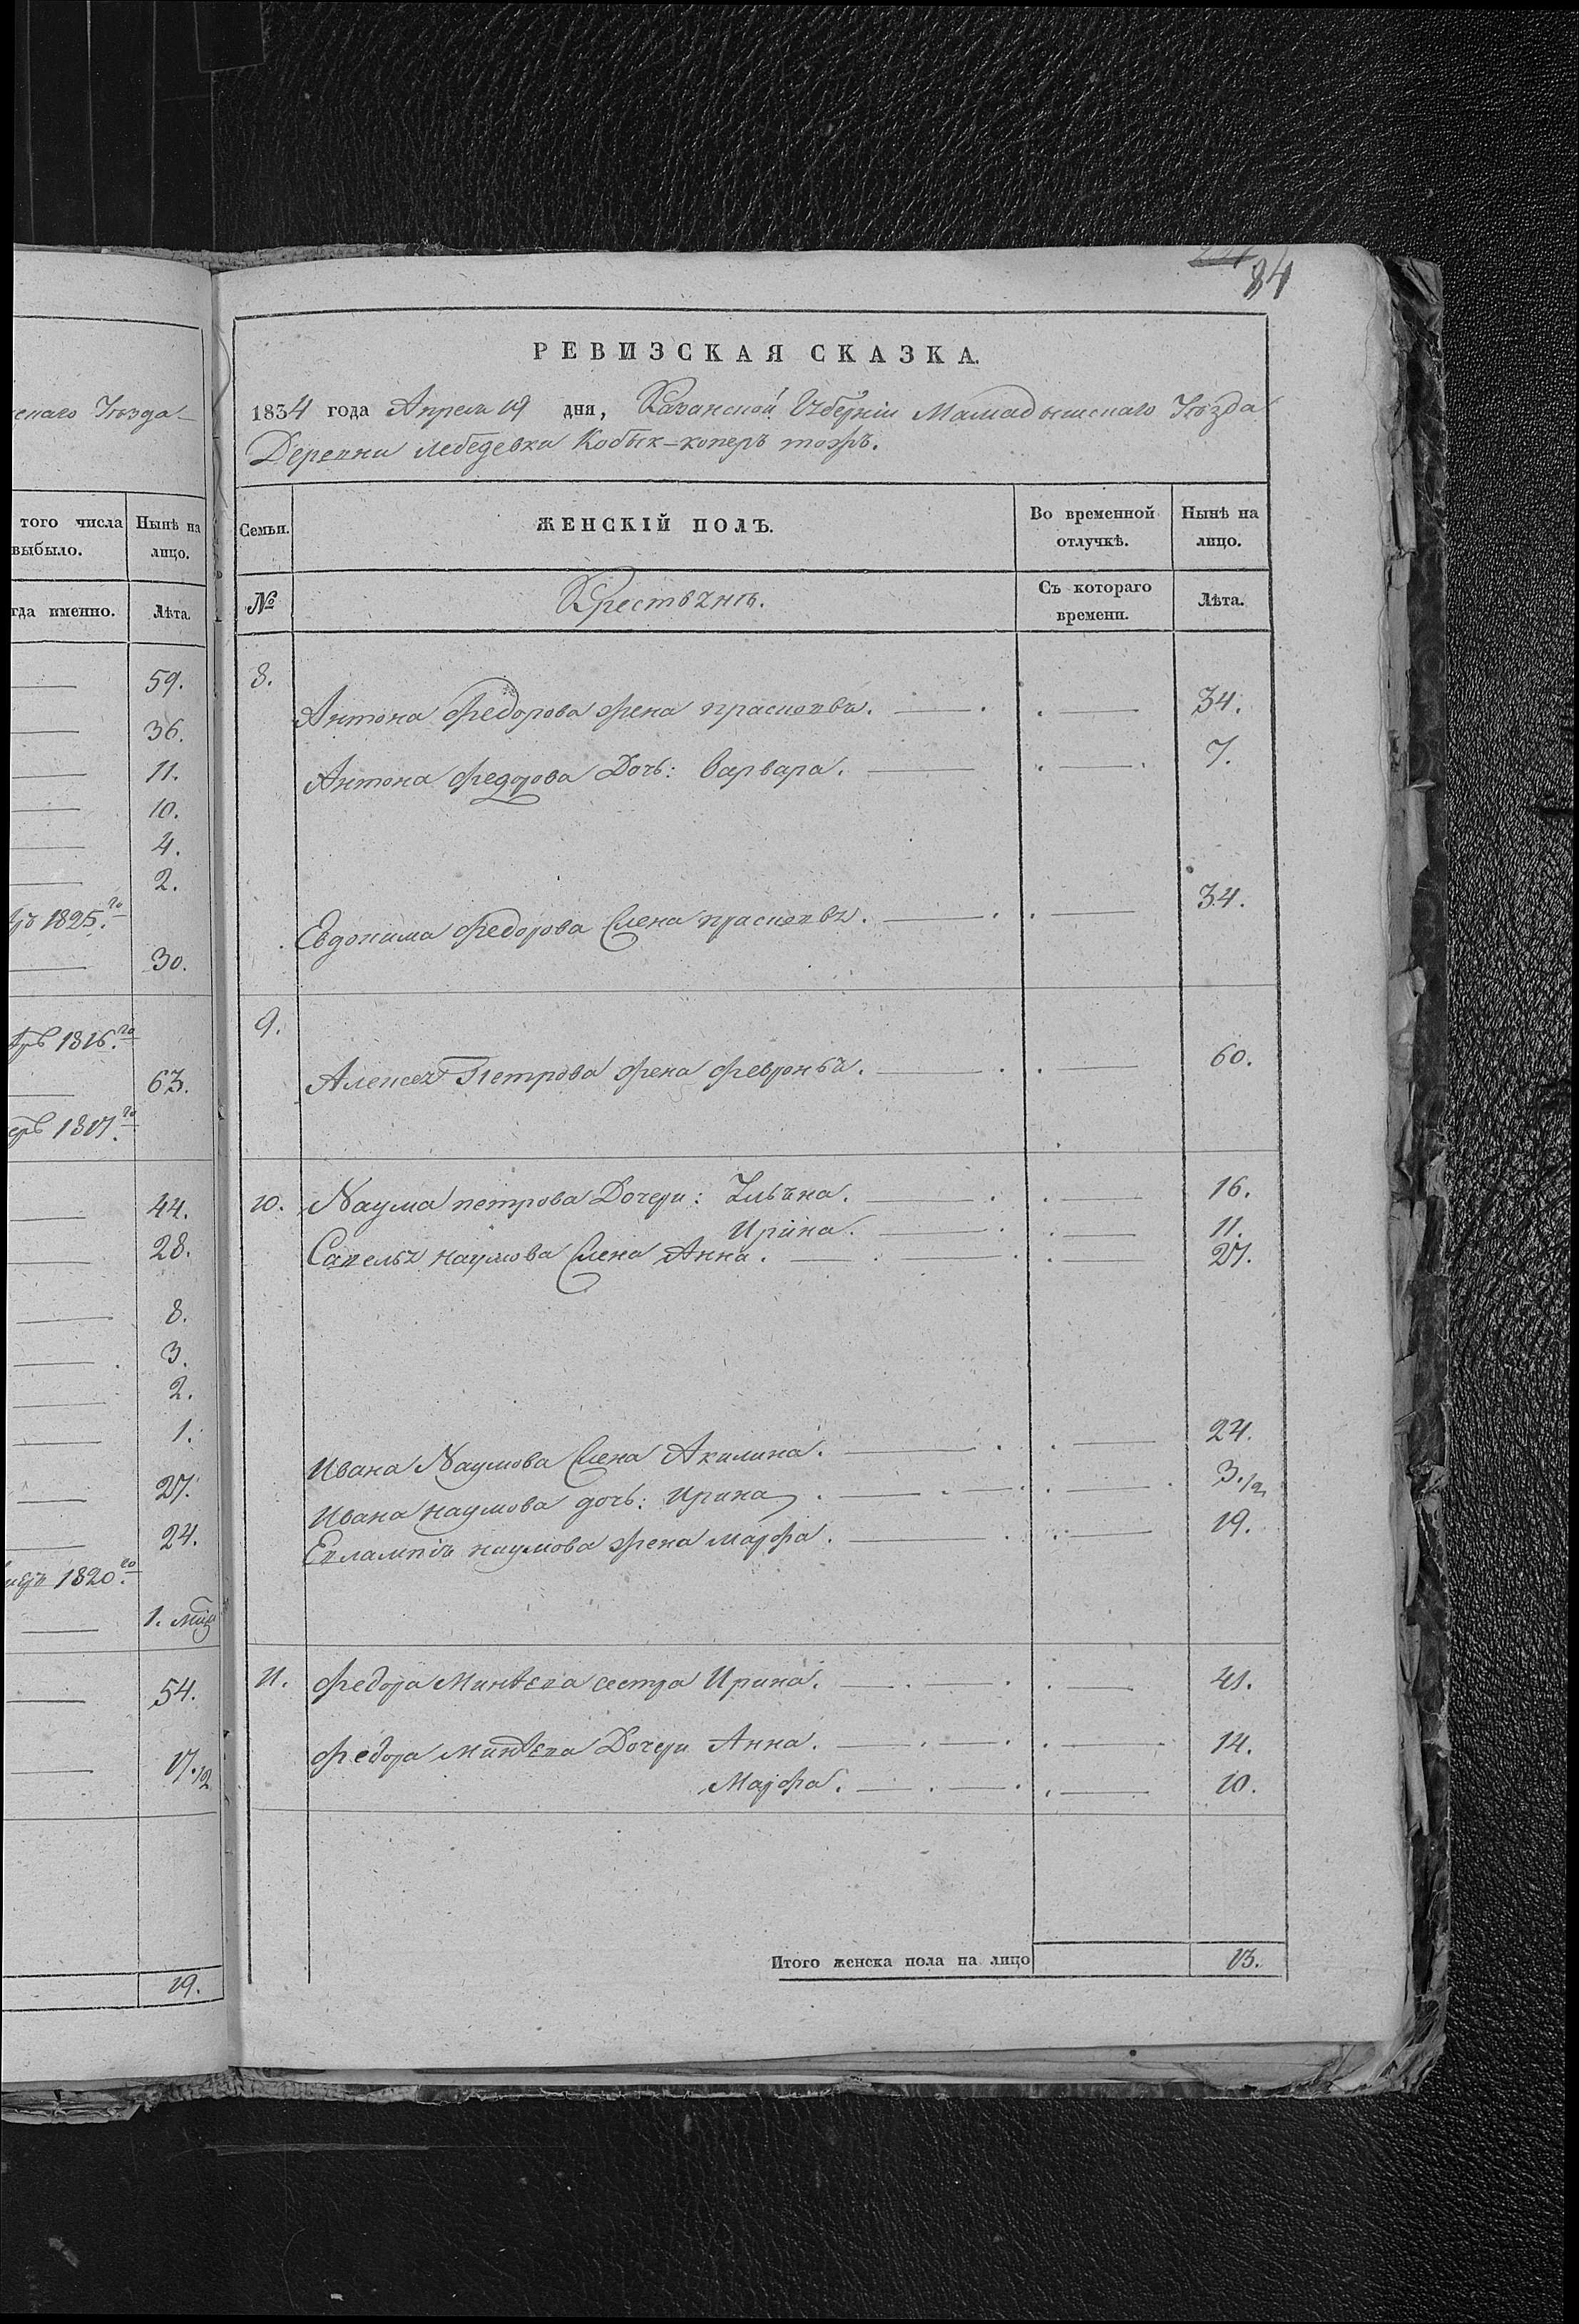 скаго Уѣзда
того числа
выбыло.
Нынѣ на
лицо.
гда именно.
Лѣта.
59.
36.
11.
10.
4.
2.
1825.го
30.
1816.го
63.
1817.го
44.
28.
8.
3.
2.
1.
27.
24.
1820.го
1. мѣц
54.
17.1/2
19.
84
РЕВИЗСКАЯ СКАЗКА.
1834 года Апреля 19 дня, Казанской Губерніи Мамадышскаго Уѣзда
Деревни Лебедевка Кобык-коперъ тожъ.
Семьи.
ЖЕНСКІЙ ПОЛЪ.
Во временной
отлучкѣ.
Нынѣ на
лицо.
№
Крестьянѣ.
Съ котораго
времени.
Лѣта.
8.
Антона Федорова жена прасковья. 34.
Антона федорова Дочь: варвара. 7.
Евдокима федорова жена прасковья. 34.
9.
Алексея Петрова жена февронья. 60.
10. Наума петрова Дочери: Ульяна. 16.
Ирина. 11.
Савелья наумова жена Анна. 27.
Ивана Наумова жена Акилина. 24.
Ивана наумова дочь: ирина. 3.1/2
Евлампія наумова жена марфа. 19.
11. федора Минѣева сестра Ирина. 41.
федора минѣева Дочери Анна. 14.
Марфа. 10.
Итого женска пола на лицо 13.